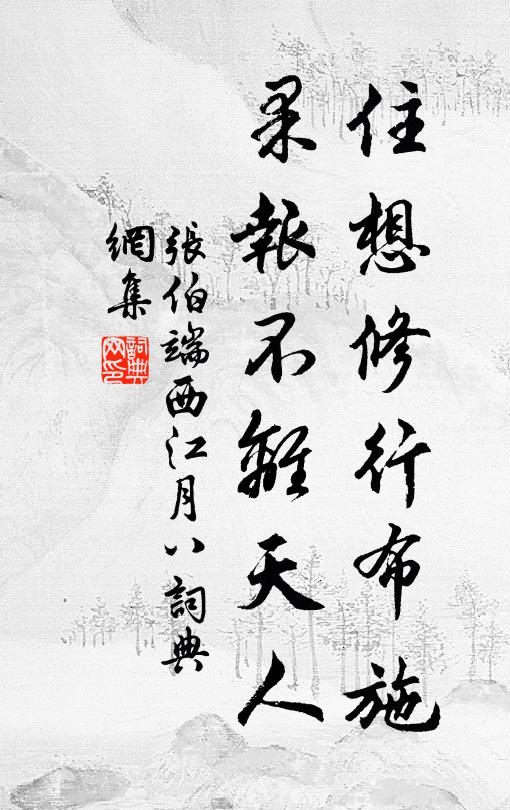 住想修行布施
果報不離天人
張伯端西江月八詞典
網集
詞典
网印